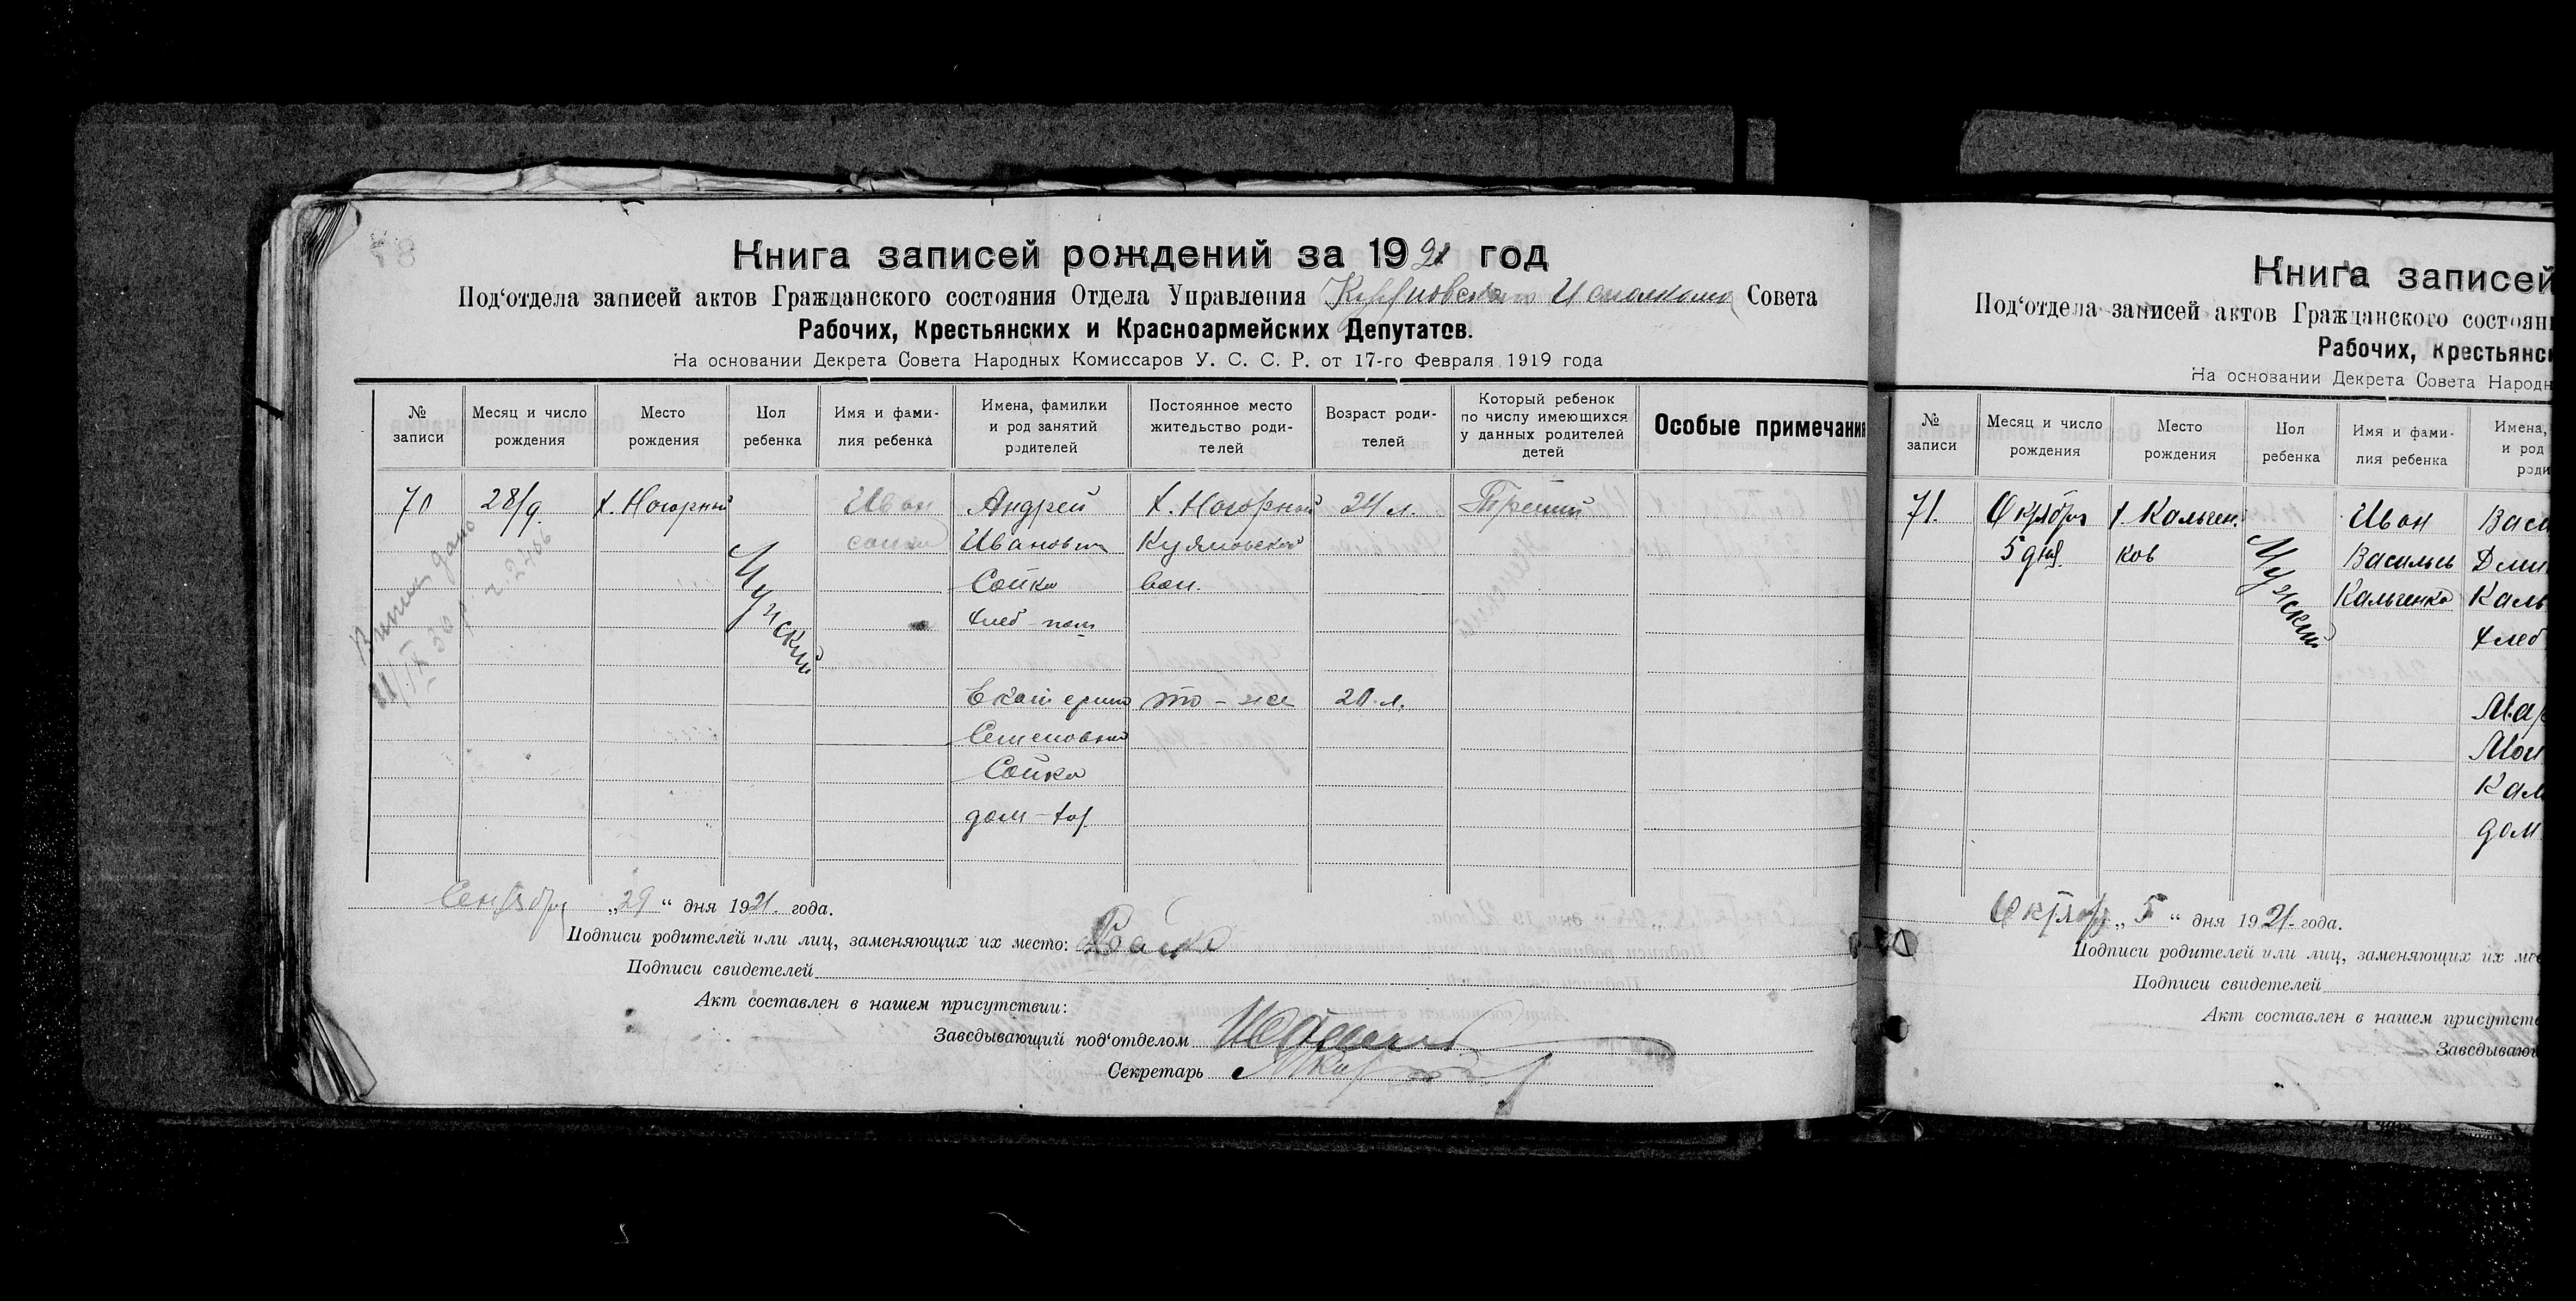 Книга записей рождений за 1921 год
Под‘отдела записей актов Гражданского состояния Отдела Управления Исполкома Совета
Рабочих, Крестьянских и Красноармейских Депутатов.
На основании Декрета Совета Народных Комиссаров У. С. С. Р. от 17-го Февраля 1919 года
№ записи
Месяц и число рождения
Место рождения
Пол ребенка
Имя и фами-
лия ребенка
Имена, фамилии
и род занятий
родителей
Постоянное место
жительство роди-
телей
Возраст роди-
телей
Который ребенок
по числу имеющихся
у данных родителей
детей
Особые примечания
70
28/9.
х. Нагорный
Мужский
Иван
Сойка
Андрей
Иванович
Сойка
хлеб-паш
х. Нагорный
Куземовской
вол.
24 л.
Третий
Екатерина
Семеновна
Сойка
дом-хоз.
то-же
20 л.
дано
Сентября „29“ дня 1921 года.
Подписи родителей или лиц, заменяющих их место:
Подписи свидетелей
Акт составлен в нашем присутствии:
Заведывающий под‘отделом
Секретарь
Книга записей
Под‘отдела записей актов Гражданского состоян
Рабочих, Крестьянс
На основании Декрета Совета Народн
№ записи
Месяц и число
рождения
Место
рождения
Пол
ребенка
Имя и фами-
лия ребенка
Имена,
и род
роди
71.
Октября
5 дня
х. Кальчен-
ков
Мужский
Иван
Васильев
Кальченко
Васи
Дми
Каль
хлеб
Мар
Мои
Кал
дом
Октября „5“ дня 1921 года.
Подписи родителей или лиц, заменяющих их ме
Подписи свидетелей
Акт составлен в нашем присутств
Заведываю